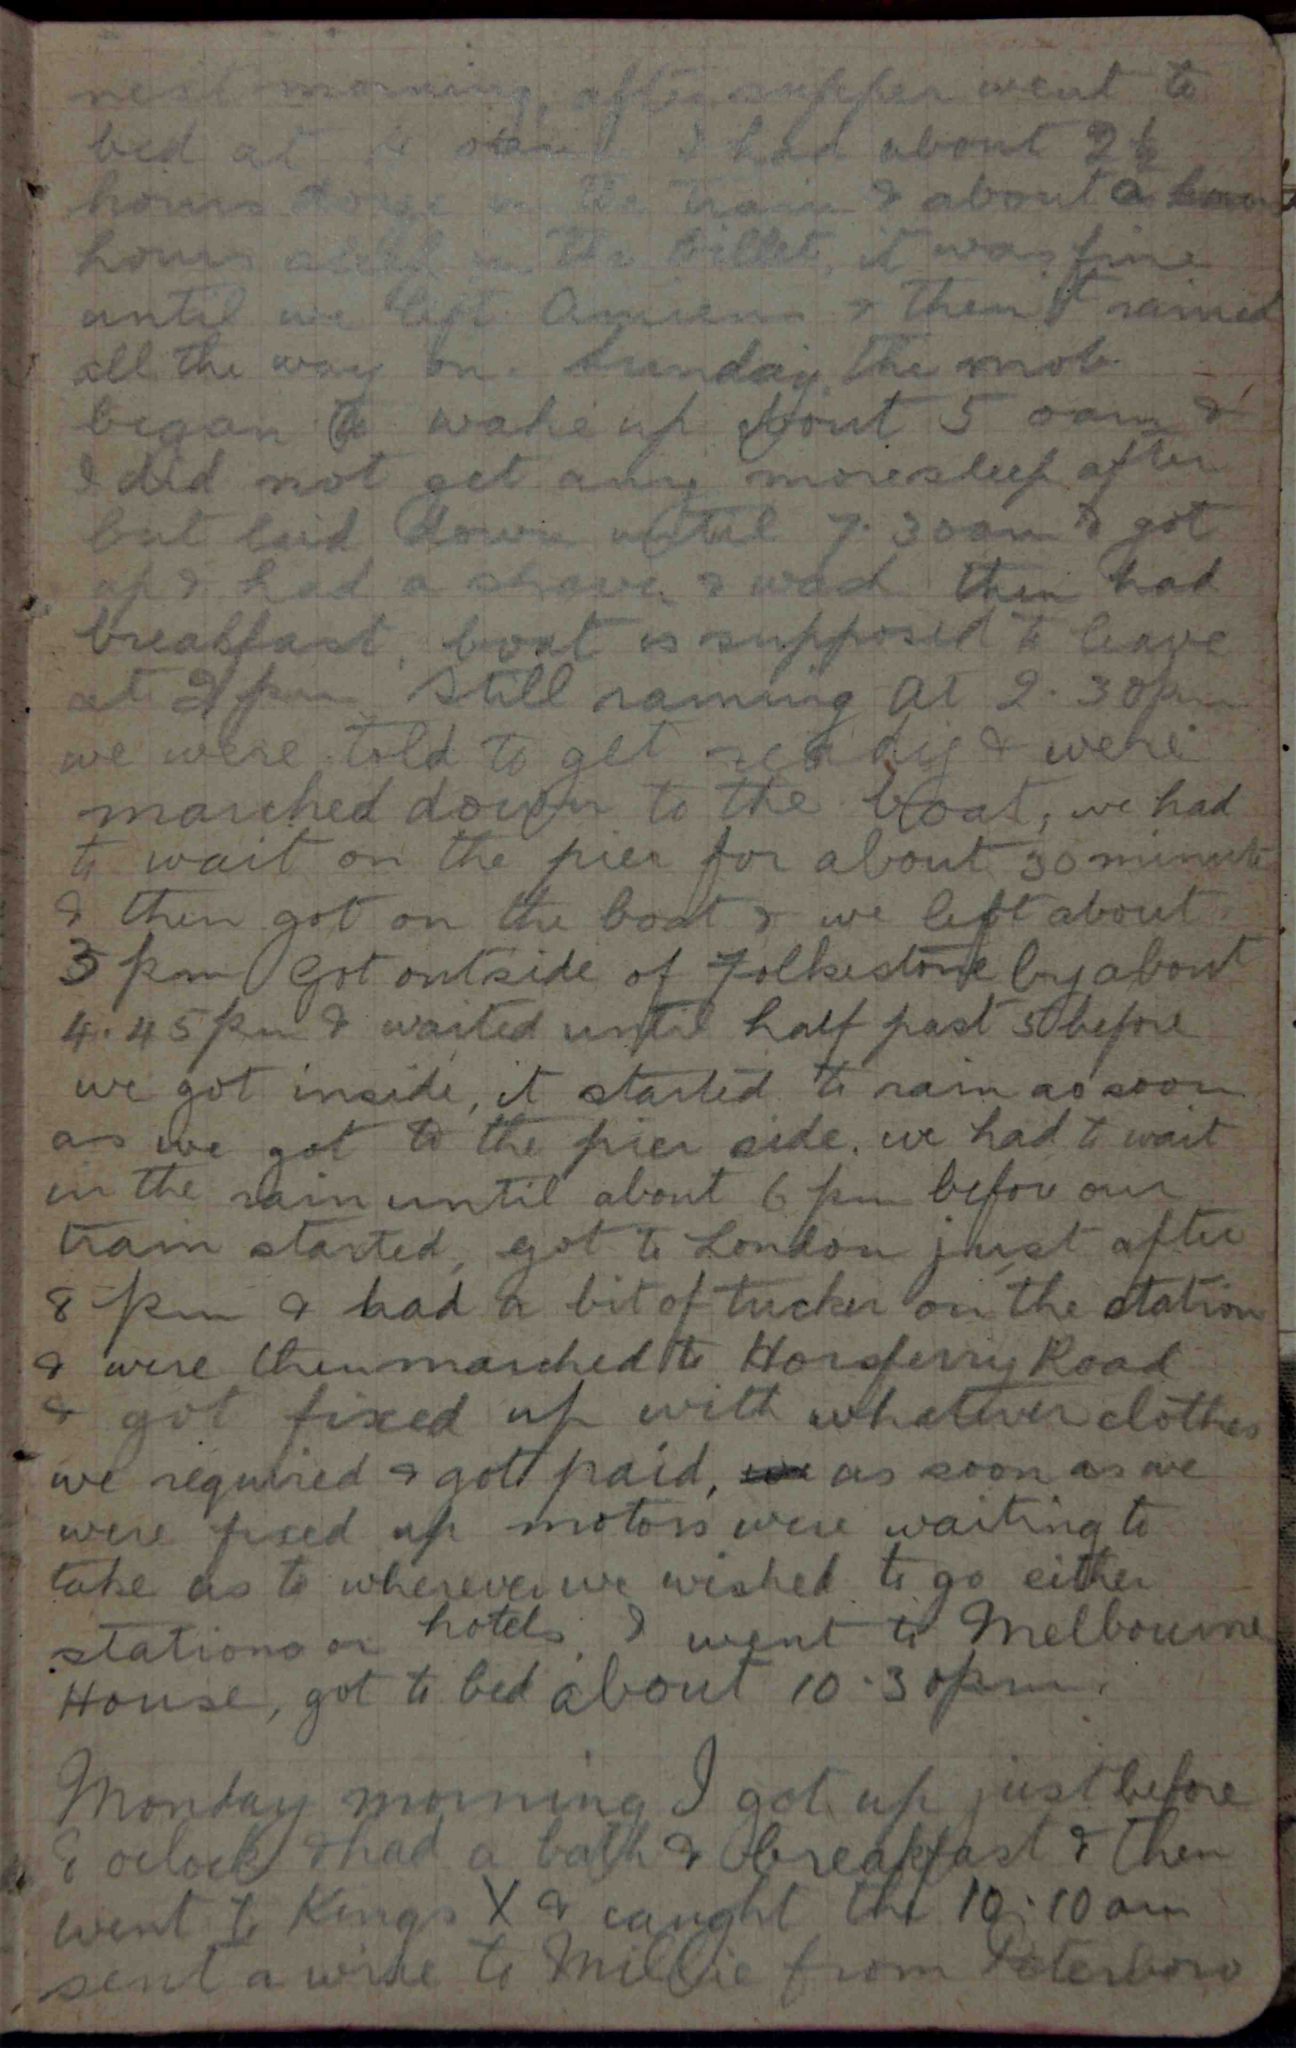 next morning, after supper went to
bed at & I had about 2 ½
hours doze in the train & about a
hours sleep in the billet, it was fine
until we left Amiens & then it rained
all the way on. Sunday the mob
began to wake up about 5 oam &
I did not get any more sleep after
but laid down until 7.30am & got
up & had a shave & wash then had
breakfast, boat is supposed to leave
at pm Still raining At 2.30pm
we were told to get ready & were
marched down to the boat, we had
to wait on the pier for about 30 minute
& then got on the boat & we left about
3 pm Got outside of Folkestone by about
4.45pm & waited until half past 5 before
we got inside, it started to rain as soon
as we got to the pier side. we had to wait
in the rain until about 6 pm before our
train started, got to London just after
8 pm & had a bit of tucker on the station
& were then marched to Horsferry Road
& got fixed up with whatever clothes
we required & got paid, as soon as we
were fixed up motors were waiting to
take us to wherever we wished to go either
stations or hotels, I went to Melbourne
House, got to bed about 10.30pm.
Monday morning I got up just before
8 oclock & had a bath & breakfast & then
went to Kings X & caught the 10.10am
sent a wire to Millie from Peterboro